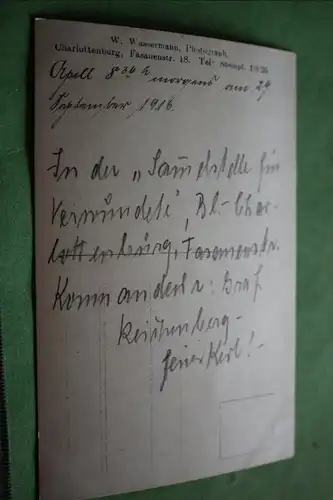 W. Wassermann, Photograph,
Charlottenburg, Fasanenstr. 48. Tel.
Apell 8³⁰ h morgens am 29
September 1916
In der „Sammelstelle für
Verwundete", Bl.-Char-
lottenburg, Fasanenstr.
Kommandeur: Graf
Reichenberg-
feiner Kerl!-